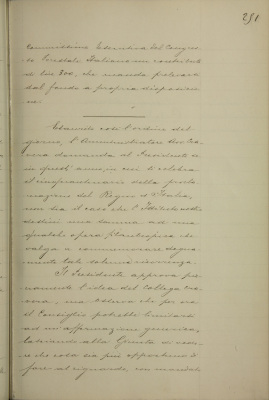 291
Commissione Esecutiva del Congres-
so Forestale Italiano un contributo
di lire 300, che manda prelevarsi
dal fondo a propria disposizio-
ne.
Esaurito così l'ordine del
giorno, l'Amministratore
domanda al Presidente se
in quest'anno, in cui si celebra
il cinquantenario della procla-
mazione del Regno d'Italia,
non sia il caso che l'Istituto
destini una somma ad una
qualche opera filantropica che
valga a commemorare degna-
mente tale solenne ricorrenza.
Il Presidente approva pie-
namente l'idea del Collega
, ma osserva che per ora
il Consiglio potrebbe limitarsi
ad un'affermazione generica,
lasciando alla Giunta di esami-
nare che cosa sia più opportuno di
fare al riguardo, con mandato